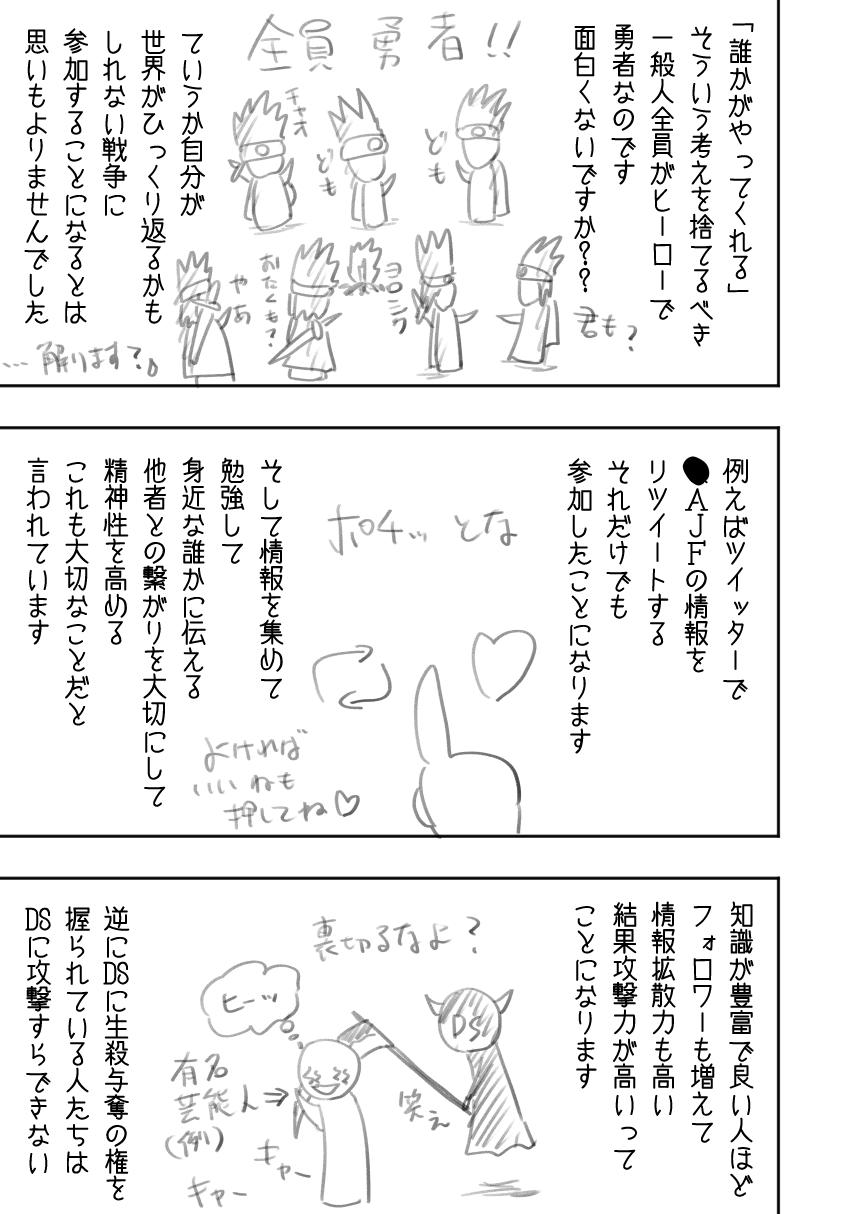 「誰かがやってくれる」
そういう考えを捨てるべき
一般人全員がヒーローで
勇者なのです
面白くないですか??
全員勇者!!
チャオ
ども
ども
君も?
ヨロシク
おたくも?
やあ
ていうか自分が
世界がひっくり返るかも
しれない戦争に
参加することになるとは
思いもよりませんでした
…解ります?
例えばツイッターで
AJFの情報を
リツイートする
それだけでも
参加したことになります
ポチッとな
そして情報を集めて
勉強して
身近な誰かに伝える
他者との繋がりを大切にして
精神性を高める
これも大切なことだと
言われています
よければ
いいねも
押してね♡
知識が豊富で良い人ほど
フォロワーも増えて
情報拡散力も高い
結果攻撃力が高いって
ことになります
裏切るなよ?
DS
ヒーッ
笑え
有名
芸能人⇒
(例)
キャー
キャー
逆にDSに生殺与奪の権を
握られている人たちは
DSに攻撃すらできない